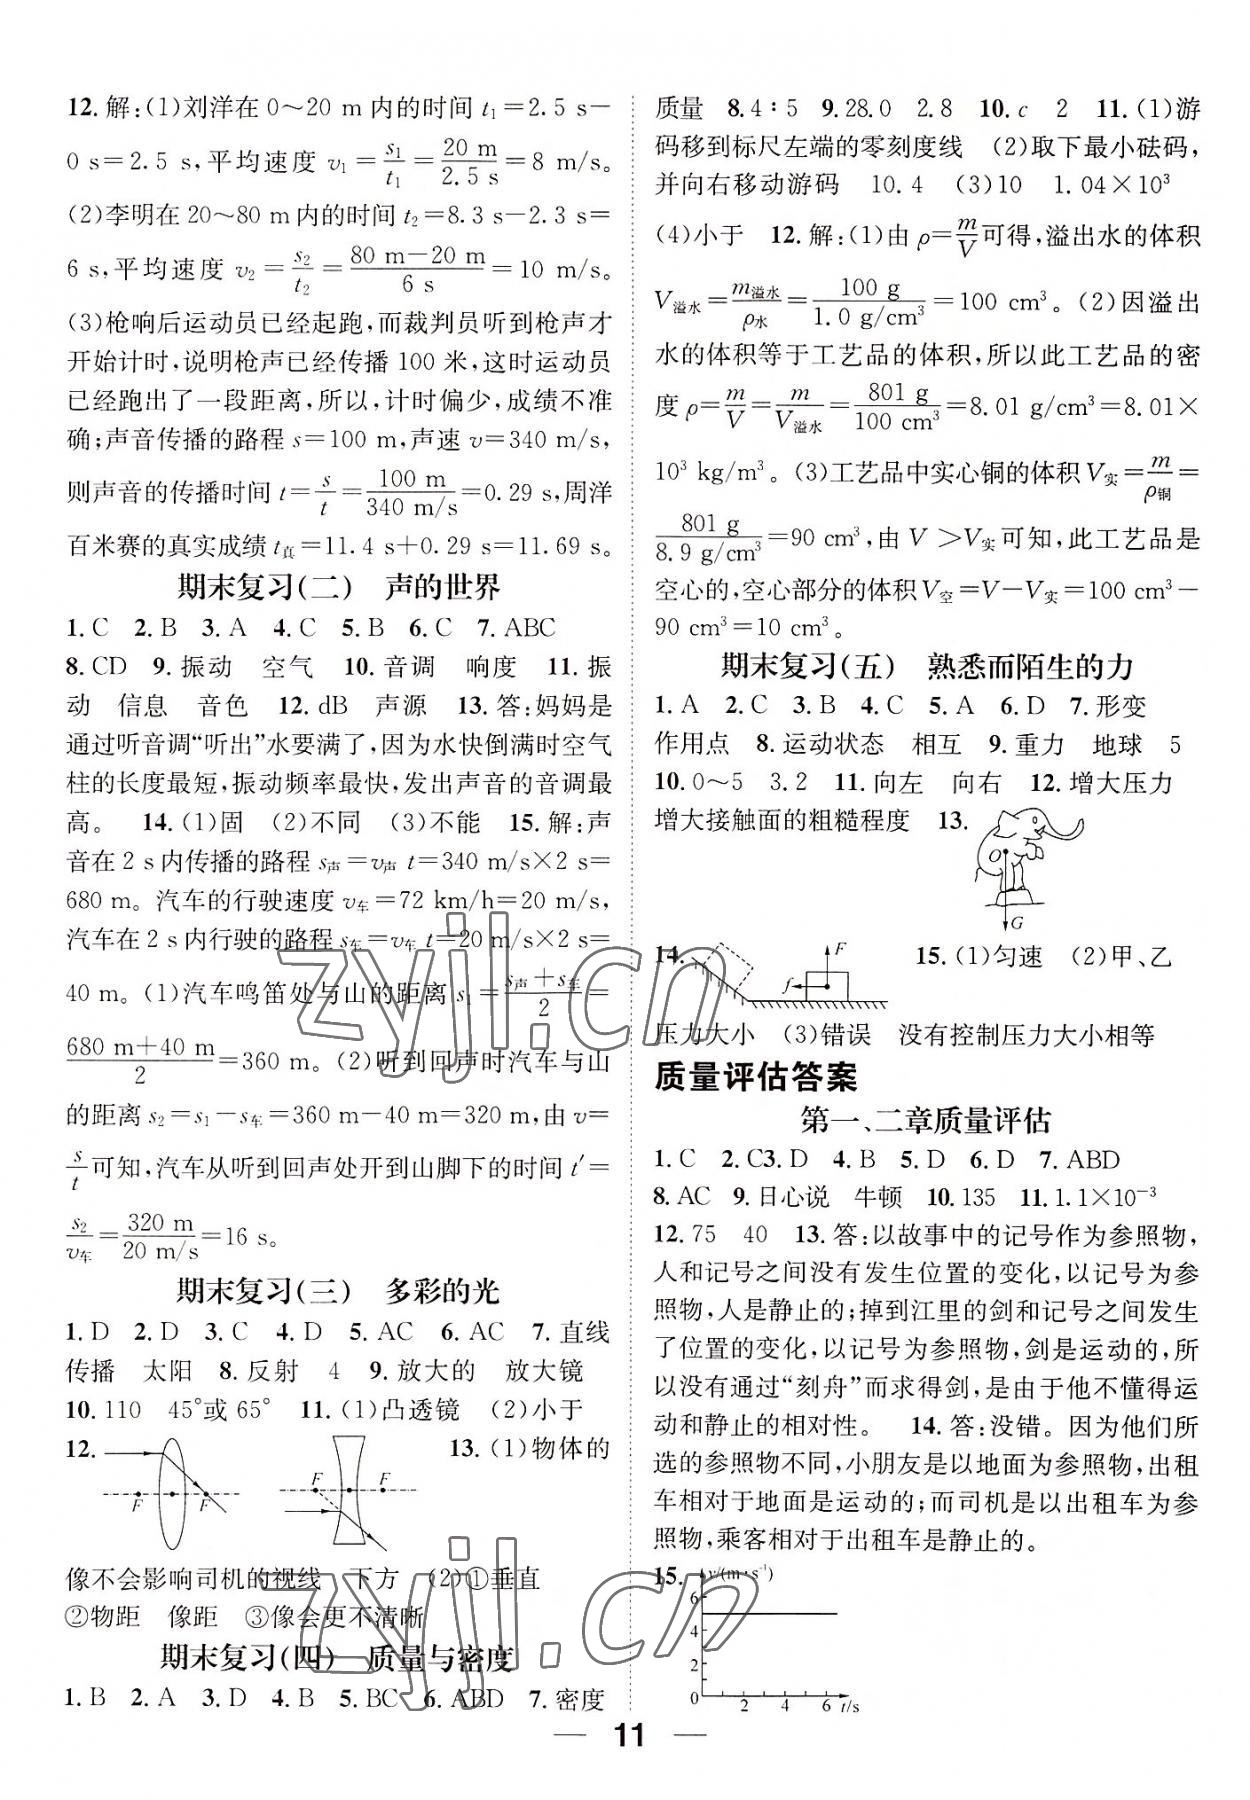 12.解:(1)刘洋在 0～20 m内的时间 t₁=2.5 s-
0 s=2.5 s,平均速度 v₁=s₁/t₁=20 m/2.5 s=8 m/s。
(2)李明在20～80 m内的时间 t₂=8.3 s-2.3 s=
6 s,平均速度 v₂=s₂/t₂=80 m-20 m/6 s=10 m/s。
(3)枪响后运动员已经起跑,而裁判员听到枪声才
开始计时,说明枪声已经传播 100 米,这时运动员
已经跑出了一段距离,所以,计时偏少,成绩不准
确;声音传播的路程 s=100 m,声速 v=340 m/s,
则声音的传播时间 t=s/t=100 m/340 m/s=0.29 s,周洋
百米赛的真实成绩t真=11.4 s+0.29 s=11.69 s。
期末复习(二) 声的世界
1.C 2.B 3.A 4.C 5.B 6.C 7.ABC
8.CD 9.振动 空气 10.音调 响度 11.振
动 信息 音色 12.dB 声源 13.答:妈妈是
通过听音调“听出”水要满了,因为水快倒满时空气
柱的长度最短,振动频率最快,发出声音的音调最
高。 14.(1)固 (2)不同 (3)不能 15.解:声
音在 2 s内传播的路程 s声=v声 t=340 m/s×2 s=
680 m。汽车的行驶速度 v车=72 km/h=20 m/s,
汽车在 2 s内行驶的路程 s车=v车 t=20 m/s×2 s=
40 m。(1)汽车鸣笛处与山的距离 s₁=s声+s车/2=
680 m+40 m/2=360 m。(2)听到回声时汽车与山
的距离 s₂=s₁-s车=360 m-40 m=320 m,由 v=
s/t可知,汽车从听到回声处开到山脚下的时间 t′=
s₂/v车=320 m/20 m/s=16 s。
期末复习(三) 多彩的光
1.D 2.D 3.C 4.D 5.AC 6.AC 7.直线
传播 太阳 8.反射 4 9.放大的 放大镜
10.110 45°或65° 11.(1)凸透镜 (2)小于
12. F F F F 13.(1)物体的
像不会影响司机的视线 下方 (2)①垂直
②物距 像距 ③像会更不清晰
期末复习(四) 质量与密度
1.B 2.A 3.D 4.B 5.BC 6.ABD 7.密度
质量 8.4∶5 9.28.0 2.8 10.c 2 11.(1)游
码移到标尺左端的零刻度线 (2)取下最小砝码,
并向右移动游码 10.4 (3)10 1.04×10³
(4)小于 12.解:(1)由 ρ=m/V可得,溢出水的体积
V溢水=m溢水/ρ水=100 g/1.0 g/cm³=100 cm³。(2)因溢出
水的体积等于工艺品的体积,所以此工艺品的密
度 ρ=m/V=m/V溢水=801 g/100 cm³=8.01 g/cm³=8.01×
10³ kg/m³。(3)工艺品中实心铜的体积 V实=m/ρ铜=
801 g/8.9 g/cm³=90 cm³,由 V>V实可知,此工艺品是
空心的,空心部分的体积 V空=V-V实=100 cm³-
90 cm³=10 cm³。
期末复习(五) 熟悉而陌生的力
1.A 2.C 3.B 4.C 5.A 6.D 7.形变
作用点 8.运动状态 相互 9.重力 地球 5
10.0～5 3.2 11.向左 向右 12.增大压力
增大接触面的粗糙程度 13. O G
14. F f 15.(1)匀速 (2)甲、乙
压力大小 (3)错误 没有控制压力大小相等
质量评估答案
第一、二章质量评估
1.C 2.C3.D 4.B 5.D 6.D 7.ABD
8.AC 9.日心说 牛顿 10.135 11.1.1×10⁻³
12.75 40 13.答:以故事中的记号作为参照物,
人和记号之间没有发生位置的变化,以记号为参
照物,人是静止的;掉到江里的剑和记号之间发生
了位置的变化,以记号为参照物,剑是运动的,所
以没有通过“刻舟”而求得剑,是由于他不懂得运
动和静止的相对性。 14.答:没错。因为他们所
选的参照物不同,小朋友是以地面为参照物,出租
车相对于地面是运动的;而司机是以出租车为参
照物,乘客相对于出租车是静止的。
15. v/(m·s⁻¹)
6
4
2
0 2 4 6 t/s
11
zyjl.cn
zyjl.cn